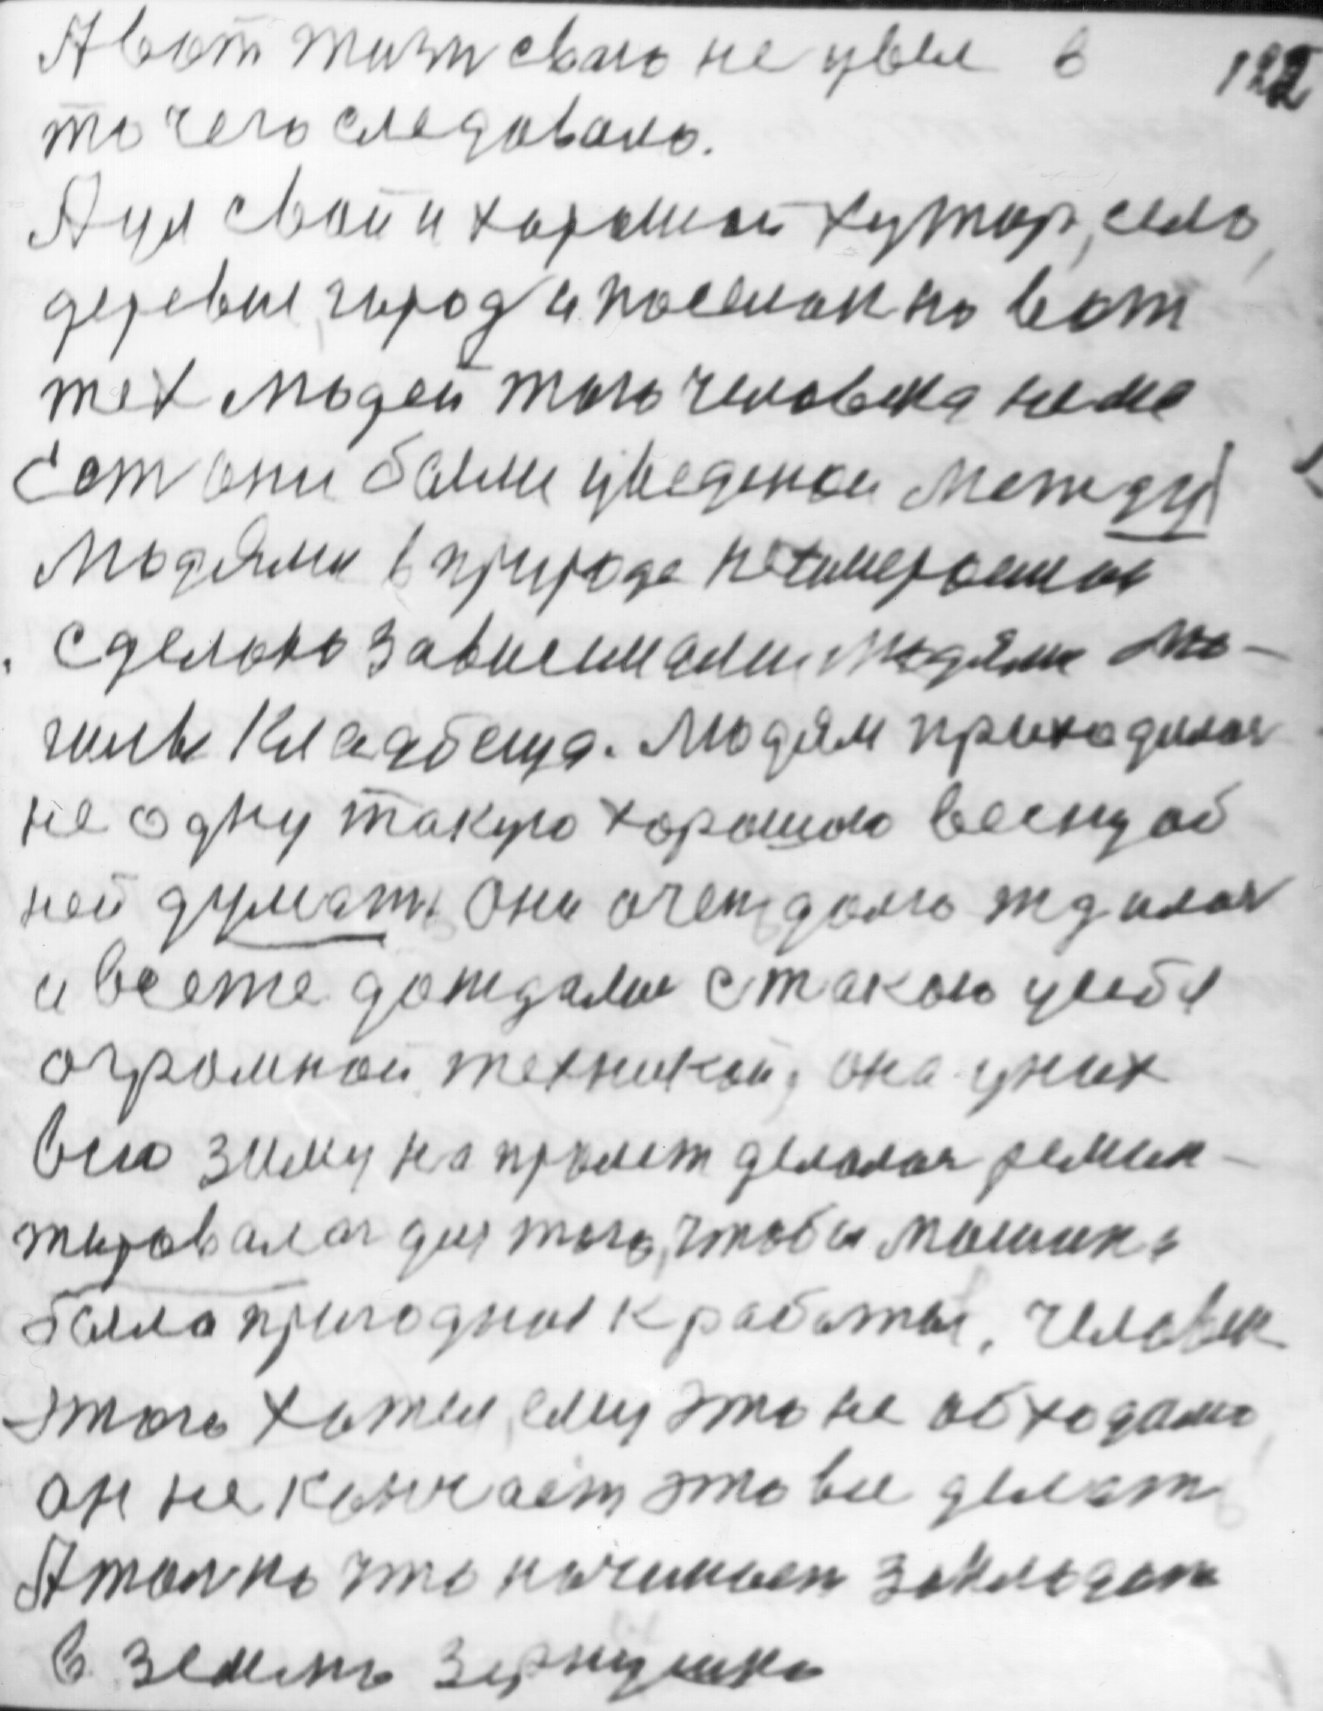 А вот жизн свою не увел в 122
то чего следовало.
Аул свой и хорошой хутор, село,
деревне, город и поселок но вот
тех людей того человека неме
Ест они были уведеной между
Людями в природе
сделоно зависимыми Людями мо-
гилы Кладбеща. Людям приходилос
не одну такую хорошою весну об
ней думать Они очень долго ждалос
и всеже дождалис с такою у себя
огромной техникой, она у них
всю зиму на пролет делолос ремон-
тировалос для того, чтобы машина
была пригодное к работы. Человек
этого хотел, ему это не обходимо,
он не кончает это все делать
А только что начинает закладат
в землю зернушко